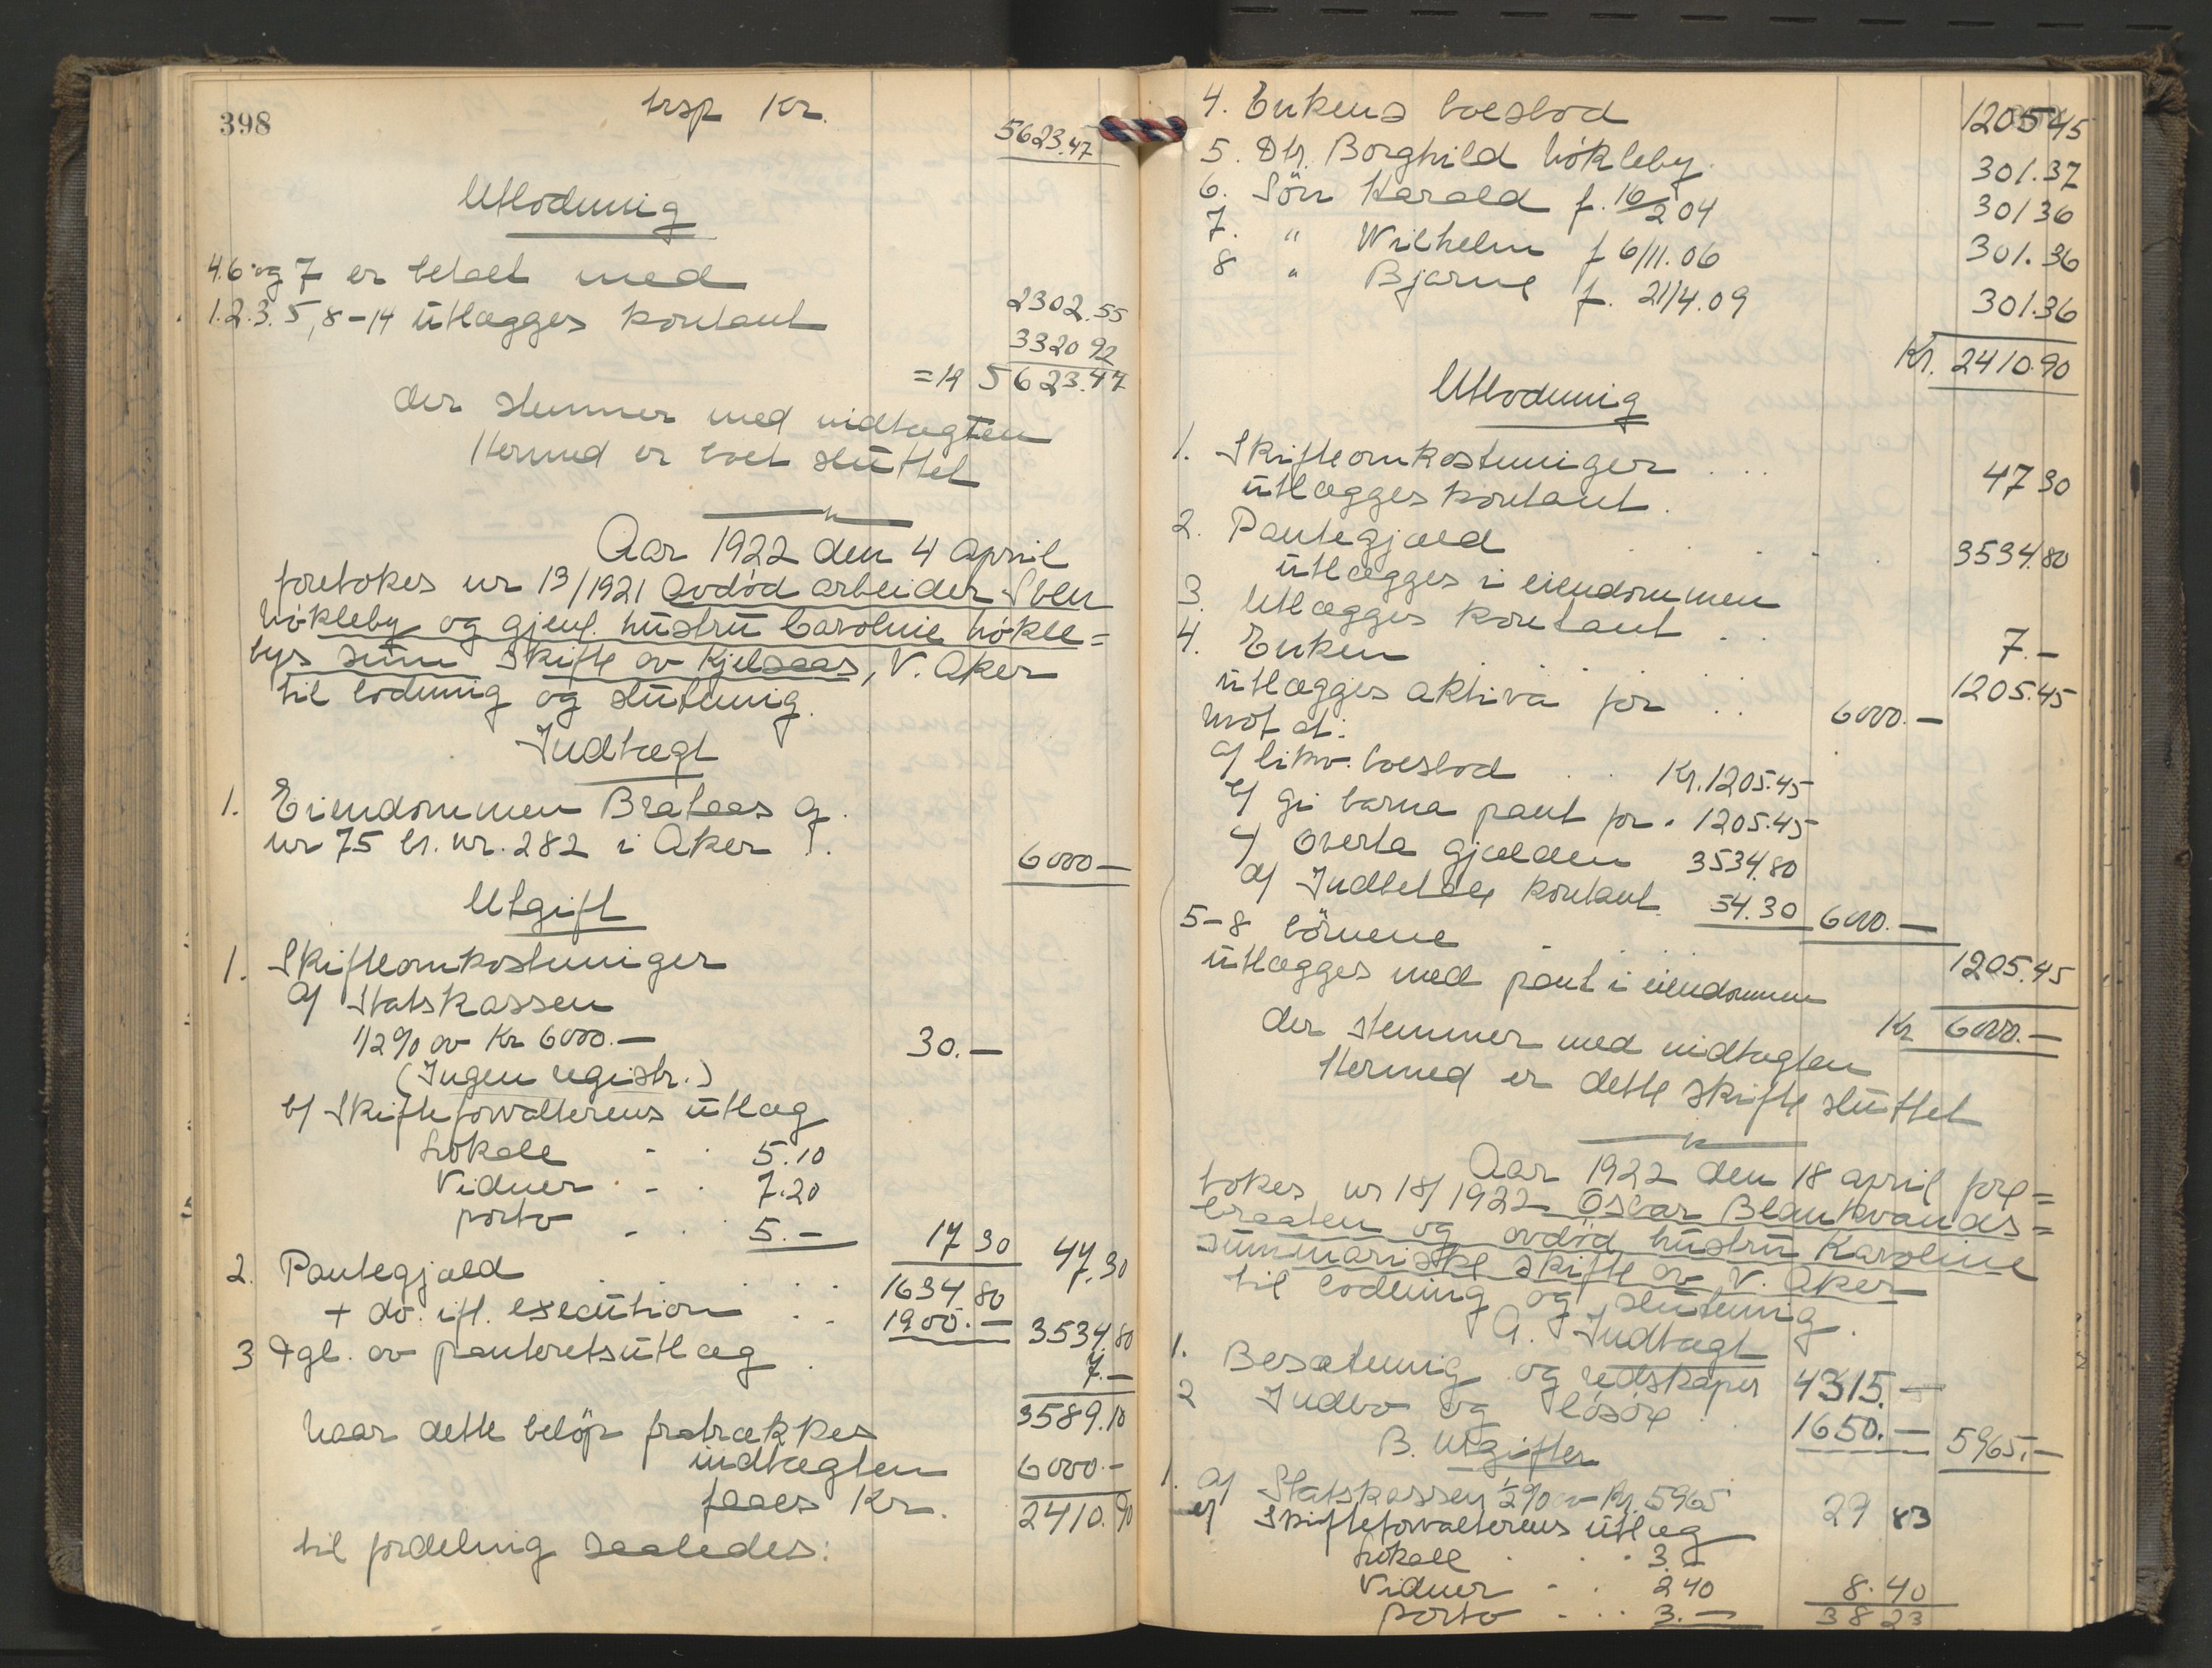 398
trsp Kr.
5623.47
Utlodning
4.6 og 7 er betalt med 2302.55
1.2.3.5, 8-14 utlægges kontant 3320 92
= kr 5623.47
der stemmer med indtægten
Hermed er boet sluttet
Aar 1922 den 4 april
foretokes nr 13/1921 avdød arbeider Sven
Løkleby og gjenl. hustru Caroline Løkle=
bys sum skifte av Kjelsaas, V. Aker
til lodning og slutning.
Indtægt
1. Eiendommen Brataas g.
nr 75 br. nr. 282 i Aker 6000 —
Utgift
1. Skifteomkostninger
a/ Statskassen
1/2 % av Kr 6000.— 30.—
(Ingen registr.)
b/ Skifteforvalterens utlæg
Lokale . . 5.10
Vidner . - . 7.20
porto - . . 5.— 17 30 47.30
2. Pantegjæld . . . . 1634 80
+ do. ifl. execution . . 1900.— 3534.80
3 Dgl. av panteretsutlæg . 7.—
3589.10
Naar dette beløp fratrækkes
indtægten 6000.—
faaes Kr. 2410.90
til fordeling saaledes:
4. Enkens boeslod 1205 45
5. Dtr. Borghild Løkleby. 301.37
6. Søn Harald f. 16/2 04 301 36
7. " Wilhelm f 6/11.06 301.36
8 " Bjarne f. 21/4.09 301.36
Kr. 2410.90
Utlodning
1. Skifteomkostninger . . . 47 30
utlægges kontant.
2. Pantegjæld . . . . 3534.80
utlægges i eiendommen
3. Utlægges kontant . . 7.—
4. Enken . . . 1205.45
utlægges aktiva for . . 6000.—
mot at:
a/ likv. boeslod . . Kr. 1205.45
b/ gi barna pant for . 1205.45
c/ Overta gjælden 3534.80
d/ Indbetale kontant 54.30 6000.—
5-8 børnene 1205.45
utlægges med pant i eiendommen
Kr 6000.—
der stemmer med indtægten
Hermed er dette skifte sluttet
Aar 1922 den 18 april fore=
tokes nr 18/1922 Oscar Blankvands=
braaten og avdød hustru Karoline
summariske skifte av V. Aker
til lodning og slutning.
A. Indtægt
1. Besætning og redskaper 4315.—
2 Indbo og løsøre . 1650.— 5965.—
B. Utgifter
1. a/ Statskassen 1/2 % av Kr. 5965 29 83
b/ Skifteforvalterens utlæg
Lokale . . . 3.—
Vidner - . 2 40
porto - . . 3.— 8.40
38 23